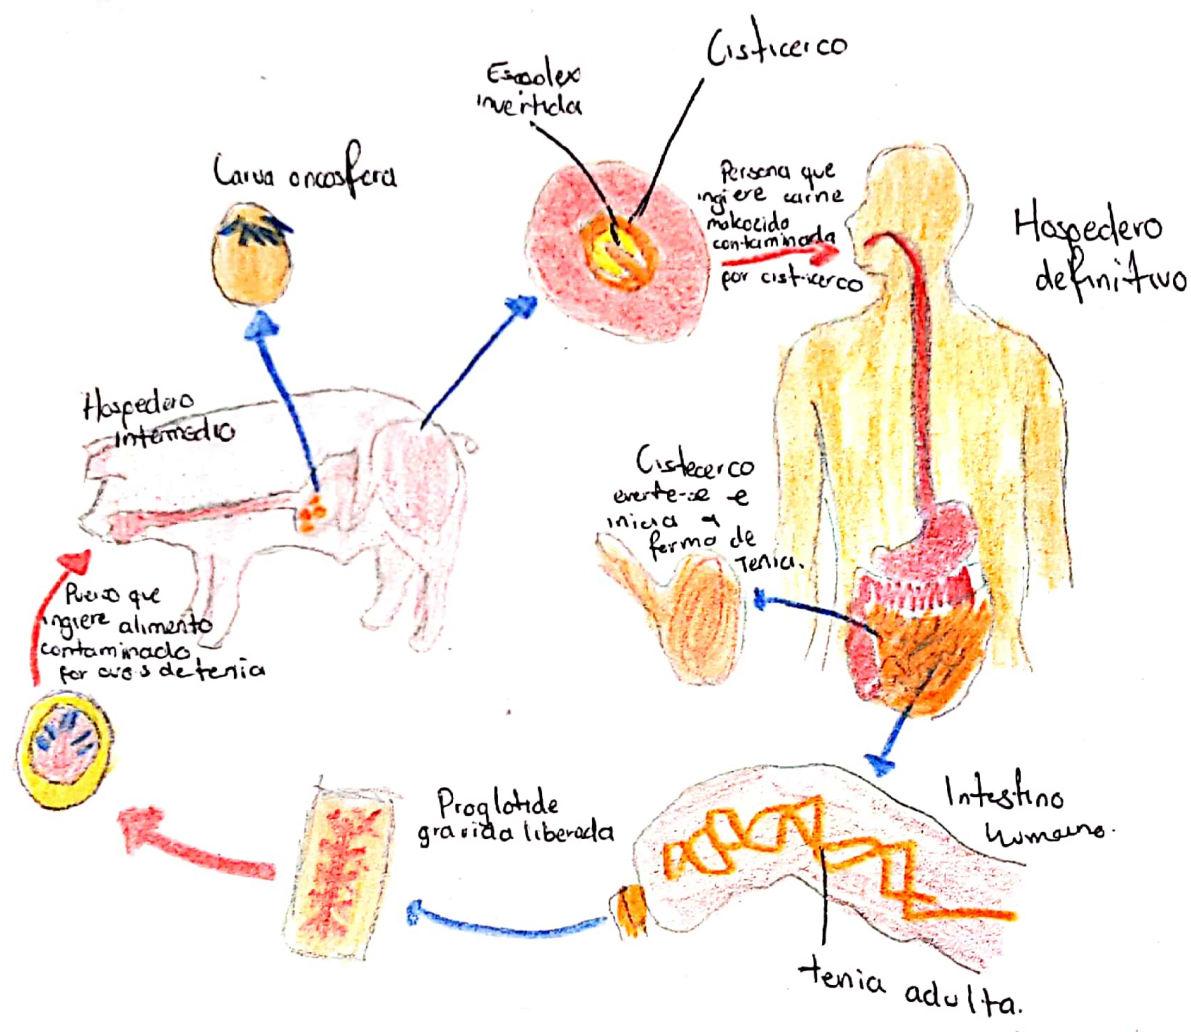 Cisticerco
Escolex
invertida
Larva oncosfera
Persona que
ingiere carne
malcozido
contaminada
por cisticerco
Hospedero
definitivo
Hospedero
intermedio
Cistecerco
everte-se e
inicia a
forma de
Tenia.
Puerco que
ingiere alimento
contaminado
por ovos de tenia
Proglotide
gravida liberada
Intestino
humano.
tenia adulta.